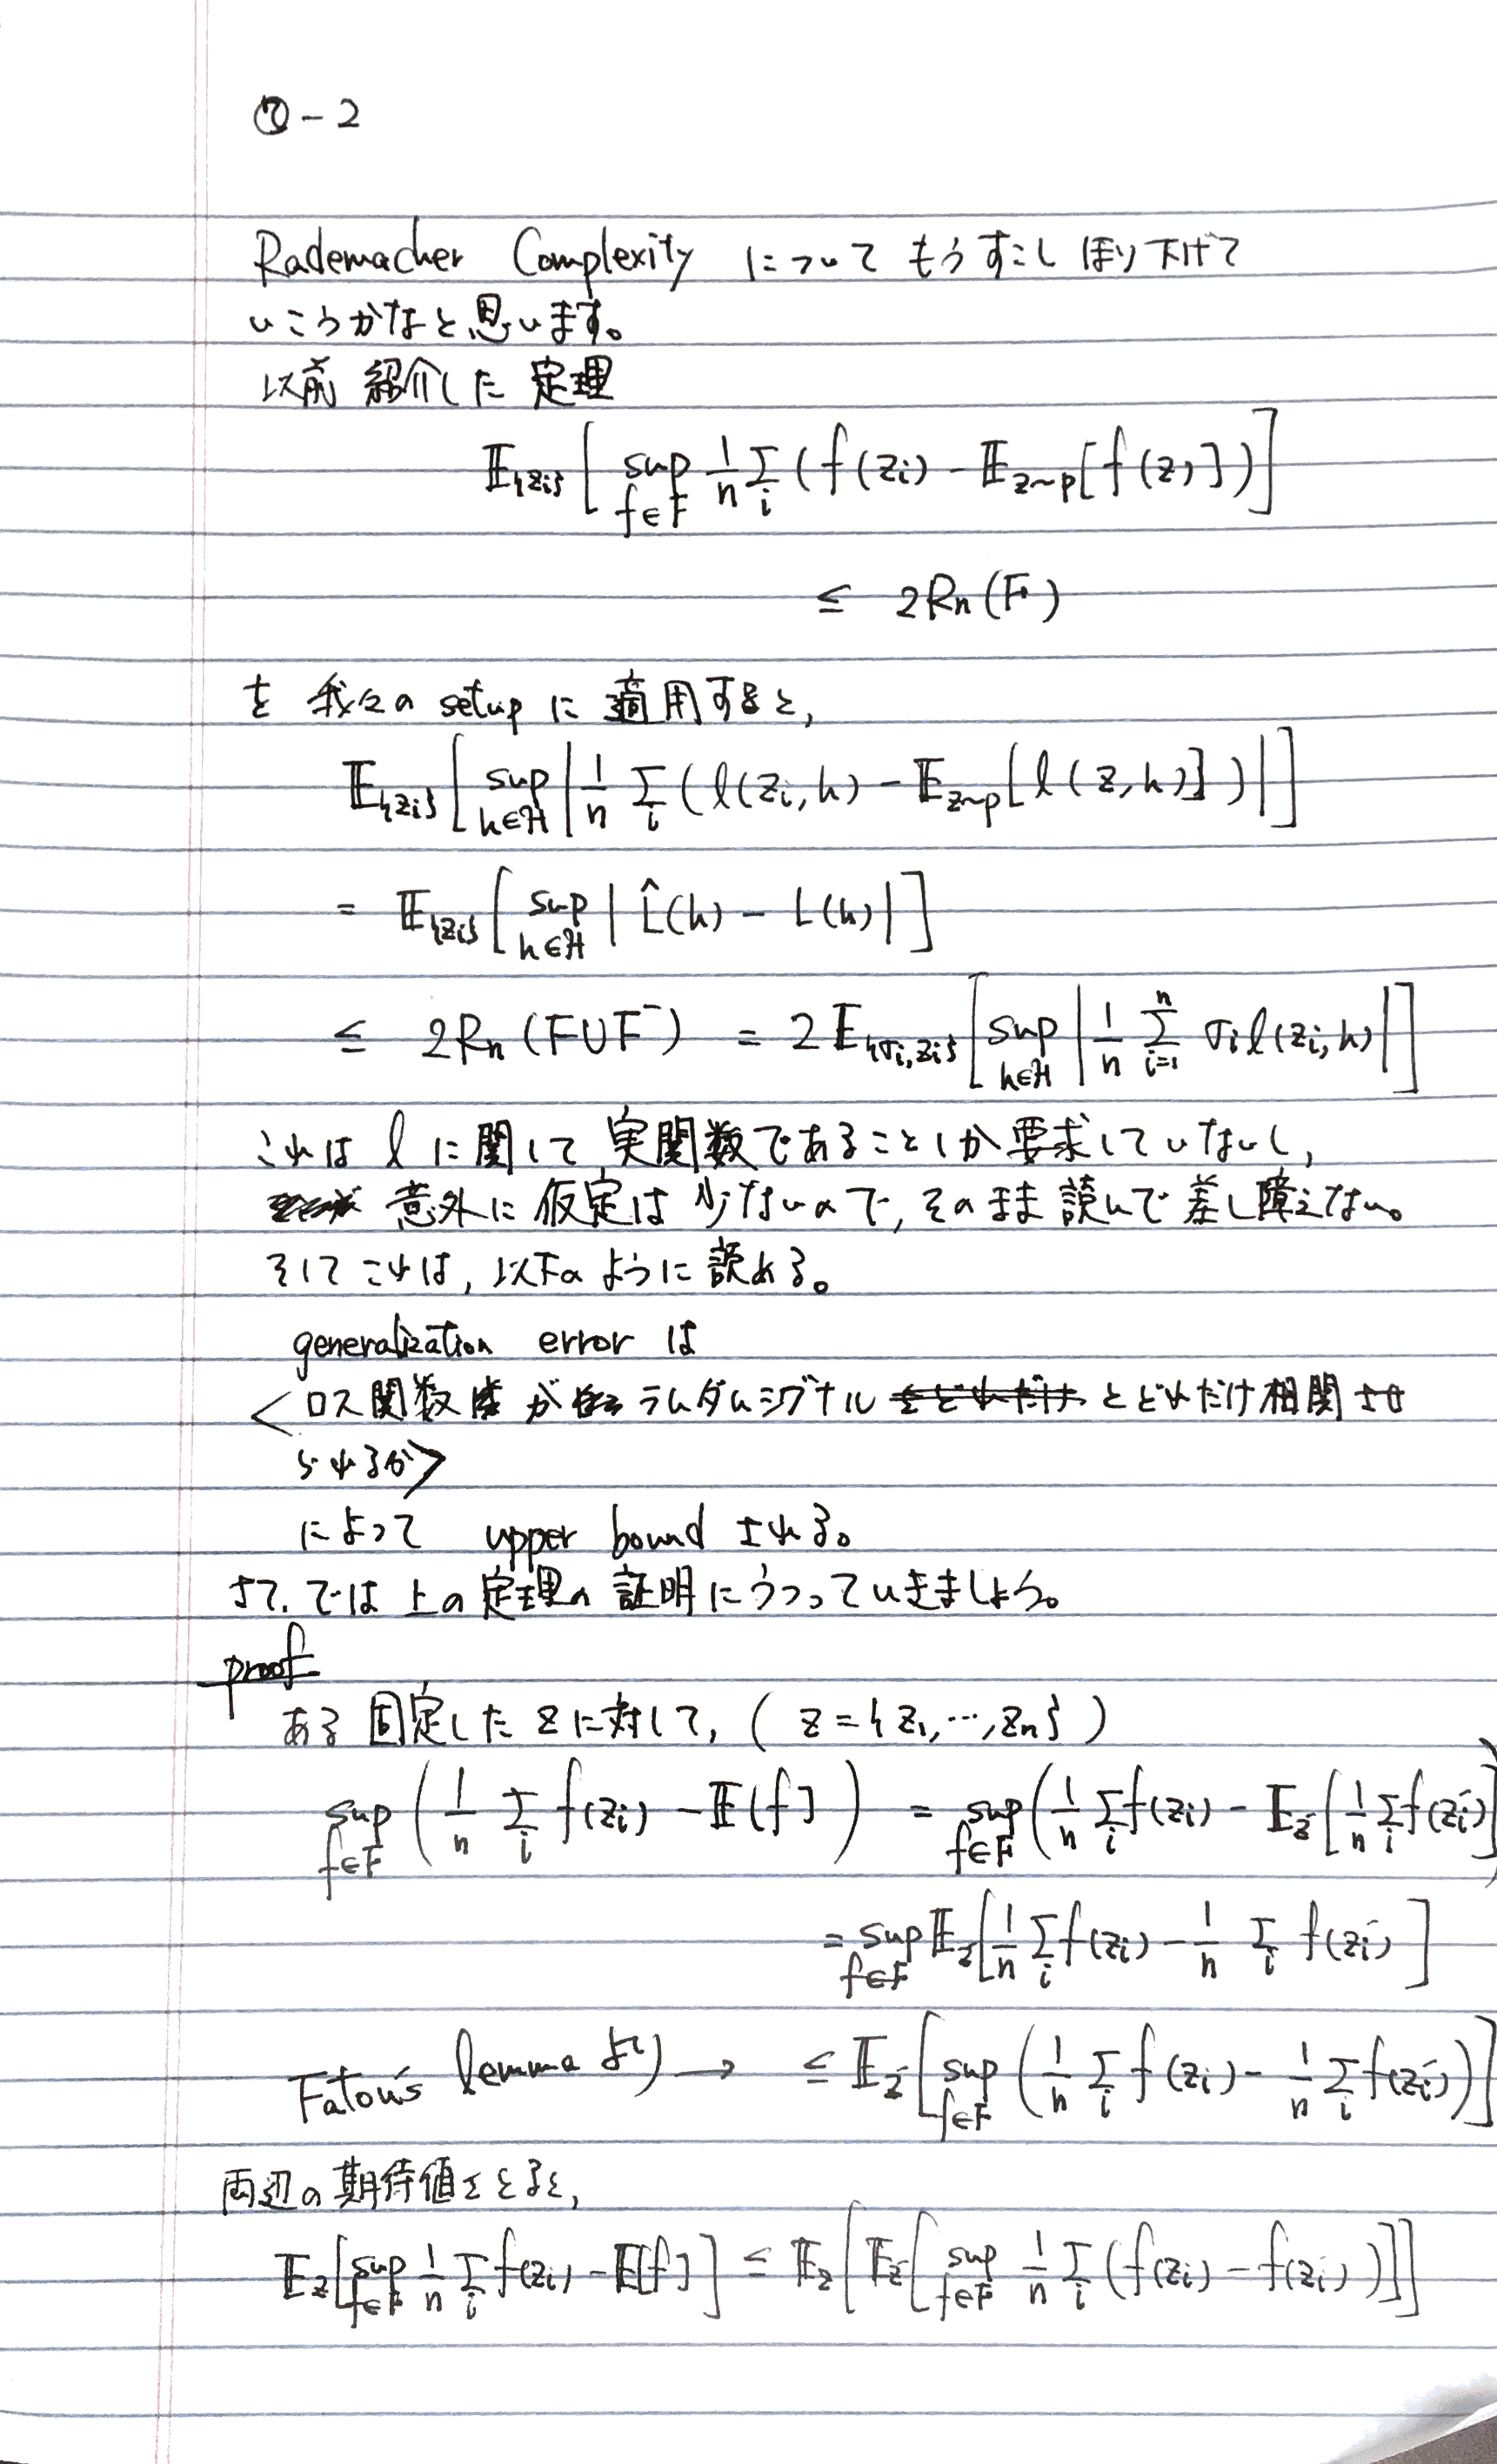 ⑦-2
Rademacher Complexity についてもうすこしほり下げて
いこうかなと思います。
以前紹介した定理
𝔼_{z_i} [ sup_{f∈F} 1/n Σ_i (f(z_i) - 𝔼_{z~p}[f(z)]) ]
≤ 2R_n(F)
を我々の setup に適用すると,
𝔼_{z_i} [ sup_{h∈ℋ} | 1/n Σ_i (l(z_i, h) - 𝔼_{z~p}[l(z, h)]) | ]
= 𝔼_{z_i} [ sup_{h∈ℋ} | L̂(h) - L(h) | ]
≤ 2R_n(F∪F⁻) = 2𝔼_{σ_i, z_i} [ sup_{h∈ℋ} | 1/n Σ_{i=1}^n σ_i l(z_i, h) | ]
これは l に関して実関数であることしか要求していないし,
意外に仮定は少ないので, そのまま読んで差し障えない。
そしてこれは, 以下のように読める。
generalization error は
<ロス関数がラムダムシグナルとどれだけ相関させ
られるか>
によって upper bound される。
さて, では上の定理の証明にうつっていきましょう。
proof
ある固定した z に対して, ( z = {z_1, ..., z_n} )
sup_{f∈F} ( 1/n Σ_i f(z_i) - 𝔼[f] ) = sup_{f∈F} ( 1/n Σ_i f(z_i) - 𝔼_{z'} [ 1/n Σ_i f(z_i') ] )
= sup_{f∈F} 𝔼_{z'} [ 1/n Σ_i f(z_i) - 1/n Σ_i f(z_i') ]
Fatou's lemma より → ≤ 𝔼_{z'} [ sup_{f∈F} ( 1/n Σ_i f(z_i) - 1/n Σ_i f(z_i') ) ]
両辺の期待値をとると,
𝔼_z [ sup_{f∈F} 1/n Σ_i f(z_i) - 𝔼[f] ] ≤ 𝔼_z [ 𝔼_{z'} [ sup_{f∈F} 1/n Σ_i (f(z_i) - f(z_i')) ] ]